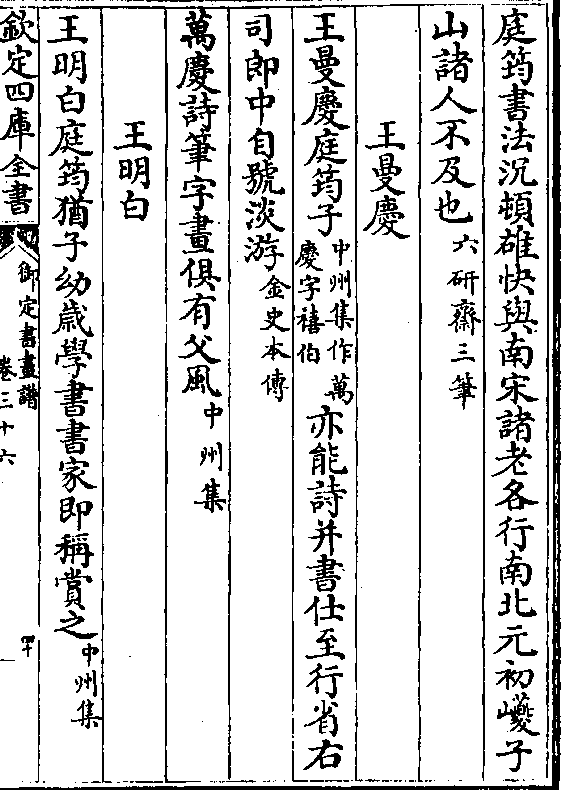 庭筠書法沉頓雄快與南宋諸老各行南北元初巙子
山諸人不及也六研齋三筆
王曼慶
王曼慶庭筠子中州集作萬
慶字禧伯亦能詩并書仕至行省右
司郎中自號淡游金史本傳
萬慶詩筆字畫俱有父風中州集
王明白
王明白庭筠猶子幼歲學書書家即稱賞之中州集
欽定四庫全書
御定書畫譜
卷三十六